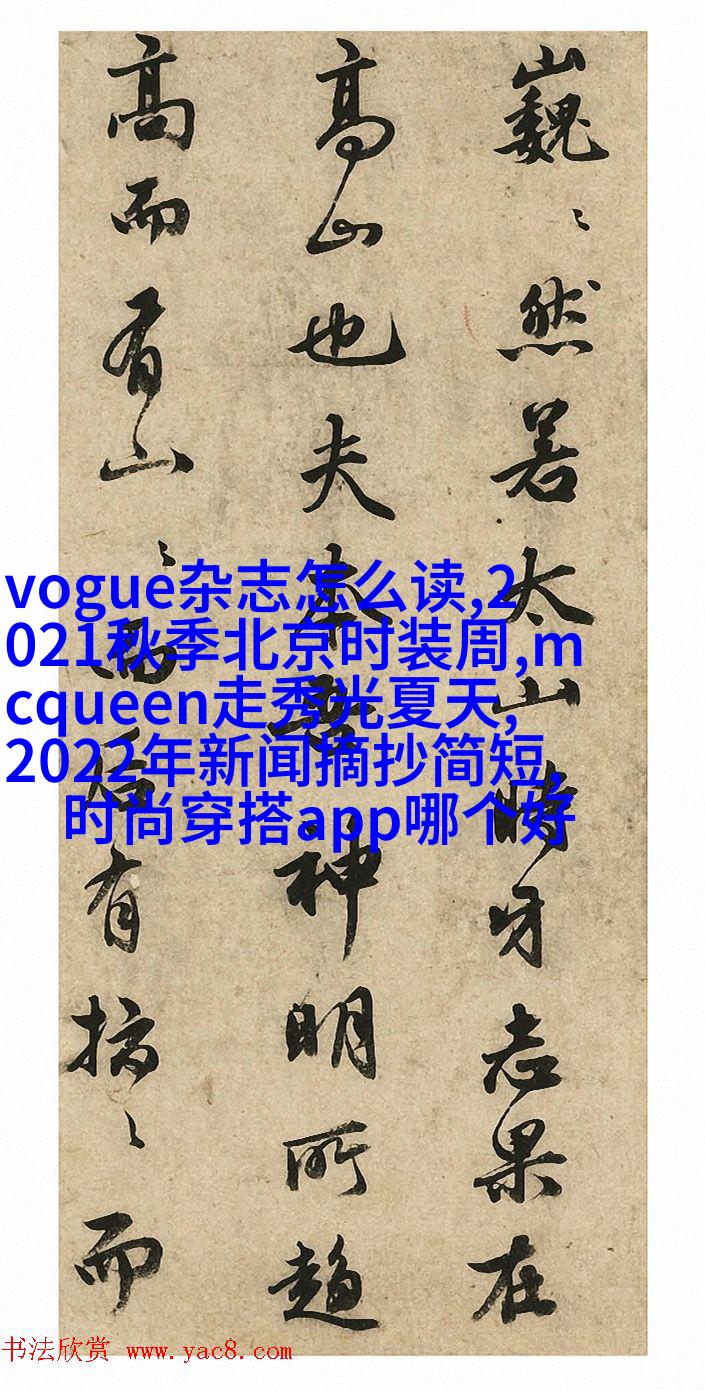 巍〻然若太山時牙志果在
高山也夫奉神明所趨
高而有山〻而后有〻而
vogue杂志怎么读,2
021秋季北京时装周,m
cqueen走秀光夏天,
2022年新闻摘抄简短,
时尚穿搭app哪个好
书法欣赏 www.yac8.com